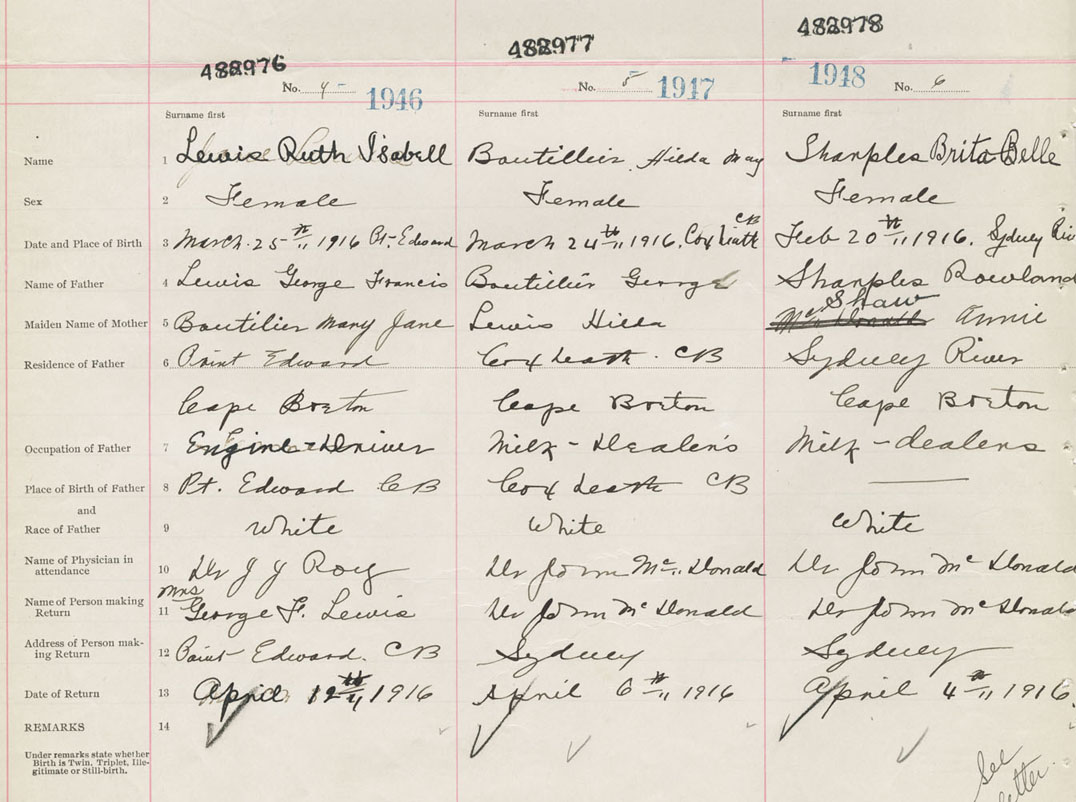 488976 488977 488978
No. 4- 1946 No. 5 1947 1948 No. 6
Surname first Surname first Surname first
Name 1 Lewis Ruth Isabell Boutillier Hilda May Sharples Brita Belle
Sex 2 Female Female Female
Date and Place of Birth 3 March 25th 1916 Pt. Edward March 24th 1916. Coxheath CB Feb 20th 1916. Sydney Riv
Name of Father 4 Lewis George Francis Boutillier George Sharples Rowland
Shaw
Maiden Name of Mother 5 Boutilier Mary Jane Lewis Hilda Annie
Residence of Father 6 Point Edward Coxheath. CB Sydney River
Cape Breton Cape Breton Cape Breton
Occupation of Father 7 Engine-Driver Milk-Dealers Milk-dealers
Place of Birth of Father 8 Pt. Edward CB Coxheath CB
and
Race of Father 9 White White White
Name of Physician in attendance 10 Dr J J Roy Dr John Mc Donald Dr John Mc Donald
Mrs
Name of Person making Return 11 George F. Lewis Dr John Mc Donald Dr John Mc Donald
Address of Person mak-
ing Return 12 Point Edward. CB Sydney Sydney
Date of Return 13 April 12th 1916 April 6th 1916 April 4th 1916.
REMARKS 14
Under remarks state whether
Birth is Twin, Triplet, Ille-
gitimate or Still-birth.
See
letter.